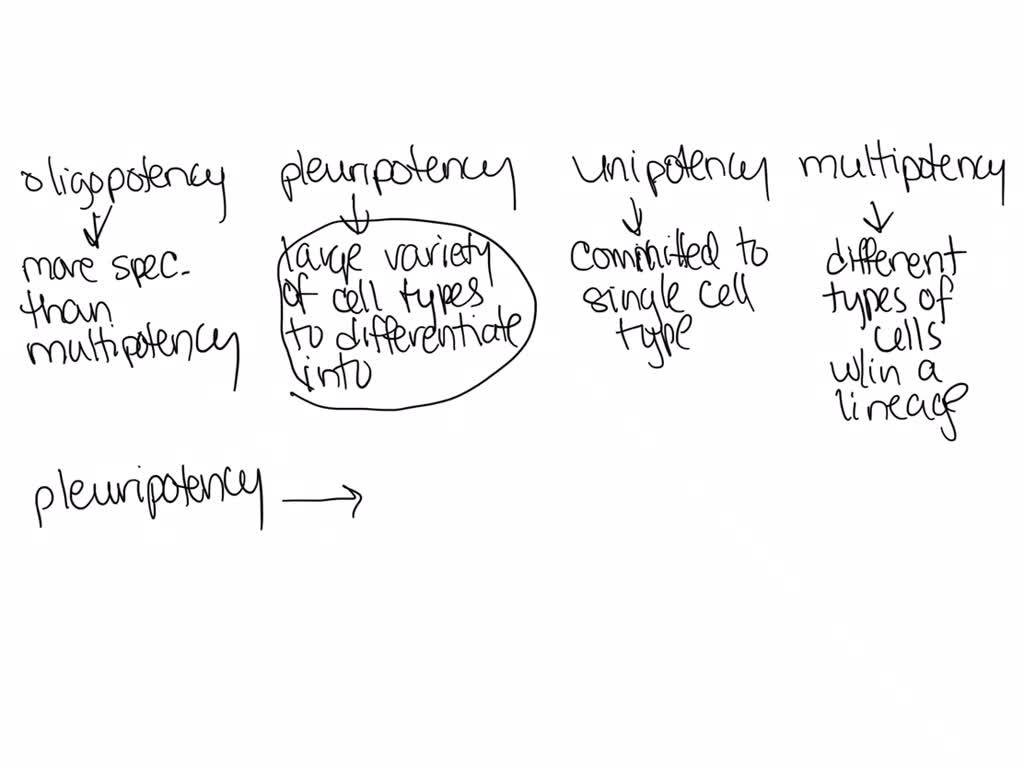 oligopotency
more spec.
than
multipotency
pleuripotency
large variety
of cell types
to differentiate
into
unipotency
committed to
single cell
type
multipotency
different
types of
cells
w/in a
lineage
pleuripotency →